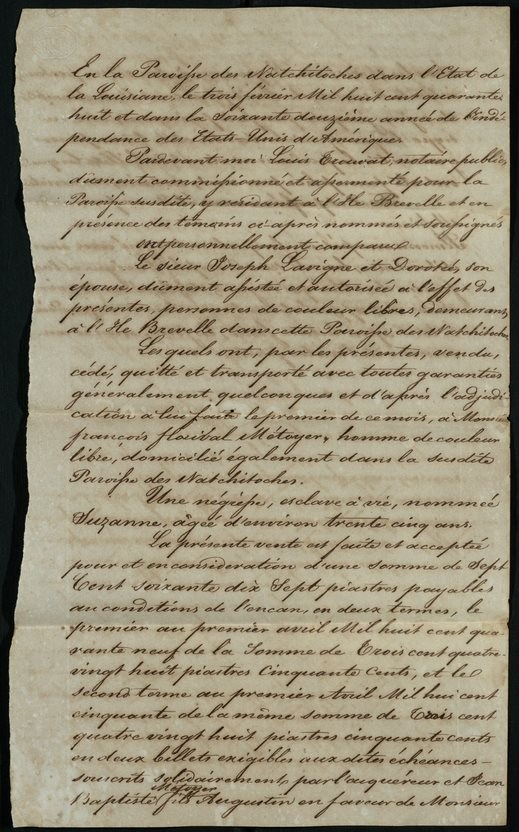 En la Paroisse des Natchitoches dans l'Etat de
la Louisiane, le trois février Mil huit cent quarante
huit et dans la Soixante douzième année de l'indé-
pendance des Etats-Unis d'Amérique.
Pardevant moi Louis notaire public
dûment commissionné et assermenté pour la
Paroisse susdite, y résidant à l'Ile Brevelle et en
présence des témoins ci-après nommés et soussignés
ont personnellement comparu
Le sieur Joseph Lavigne et Dorothé, son
épouse, dûment assistée et autorisée à l'effet des
présentes, personnes de couleur libres, demeurant
à l'Ile Brevelle dans cette Paroisse des Natchitoches
Lesquels ont, par les présentes, vendu,
cédé, quitté et transporté avec toutes garanties
généralement quelconques et d'après l'adjudi-
cation à lui faite le premier de ce mois, à Monsieur
françois florival Métoyer, homme de couleur
libre, domicilié également dans la susdite
Paroisse des Natchitoches.
Une négresse, esclave à vie, nommée
Suzanne, âgée d'environ trente cinq ans.
La présente vente est faite et acceptée
pour et en considération d'une somme de Sept
Cent soixante dix Sept piastres payables
au conditions de l'encan, en deux termes, le
premier au premier avril Mil huit cent qua-
rante neuf de la Somme de Trois cent quatre-
vingt huit piastres Cinquante Cents, et le
second terme au premier Avril Mil hui cent
cinquante de la même somme de Trois cent
quatre vingt huit piastres cinquante cents
en deux billets exigibles aux dites échéances-
souscrits solidairement, par l'acquéreur et Jean
Metoyer
Baptiste fils Augustin en faveur de Monsieur